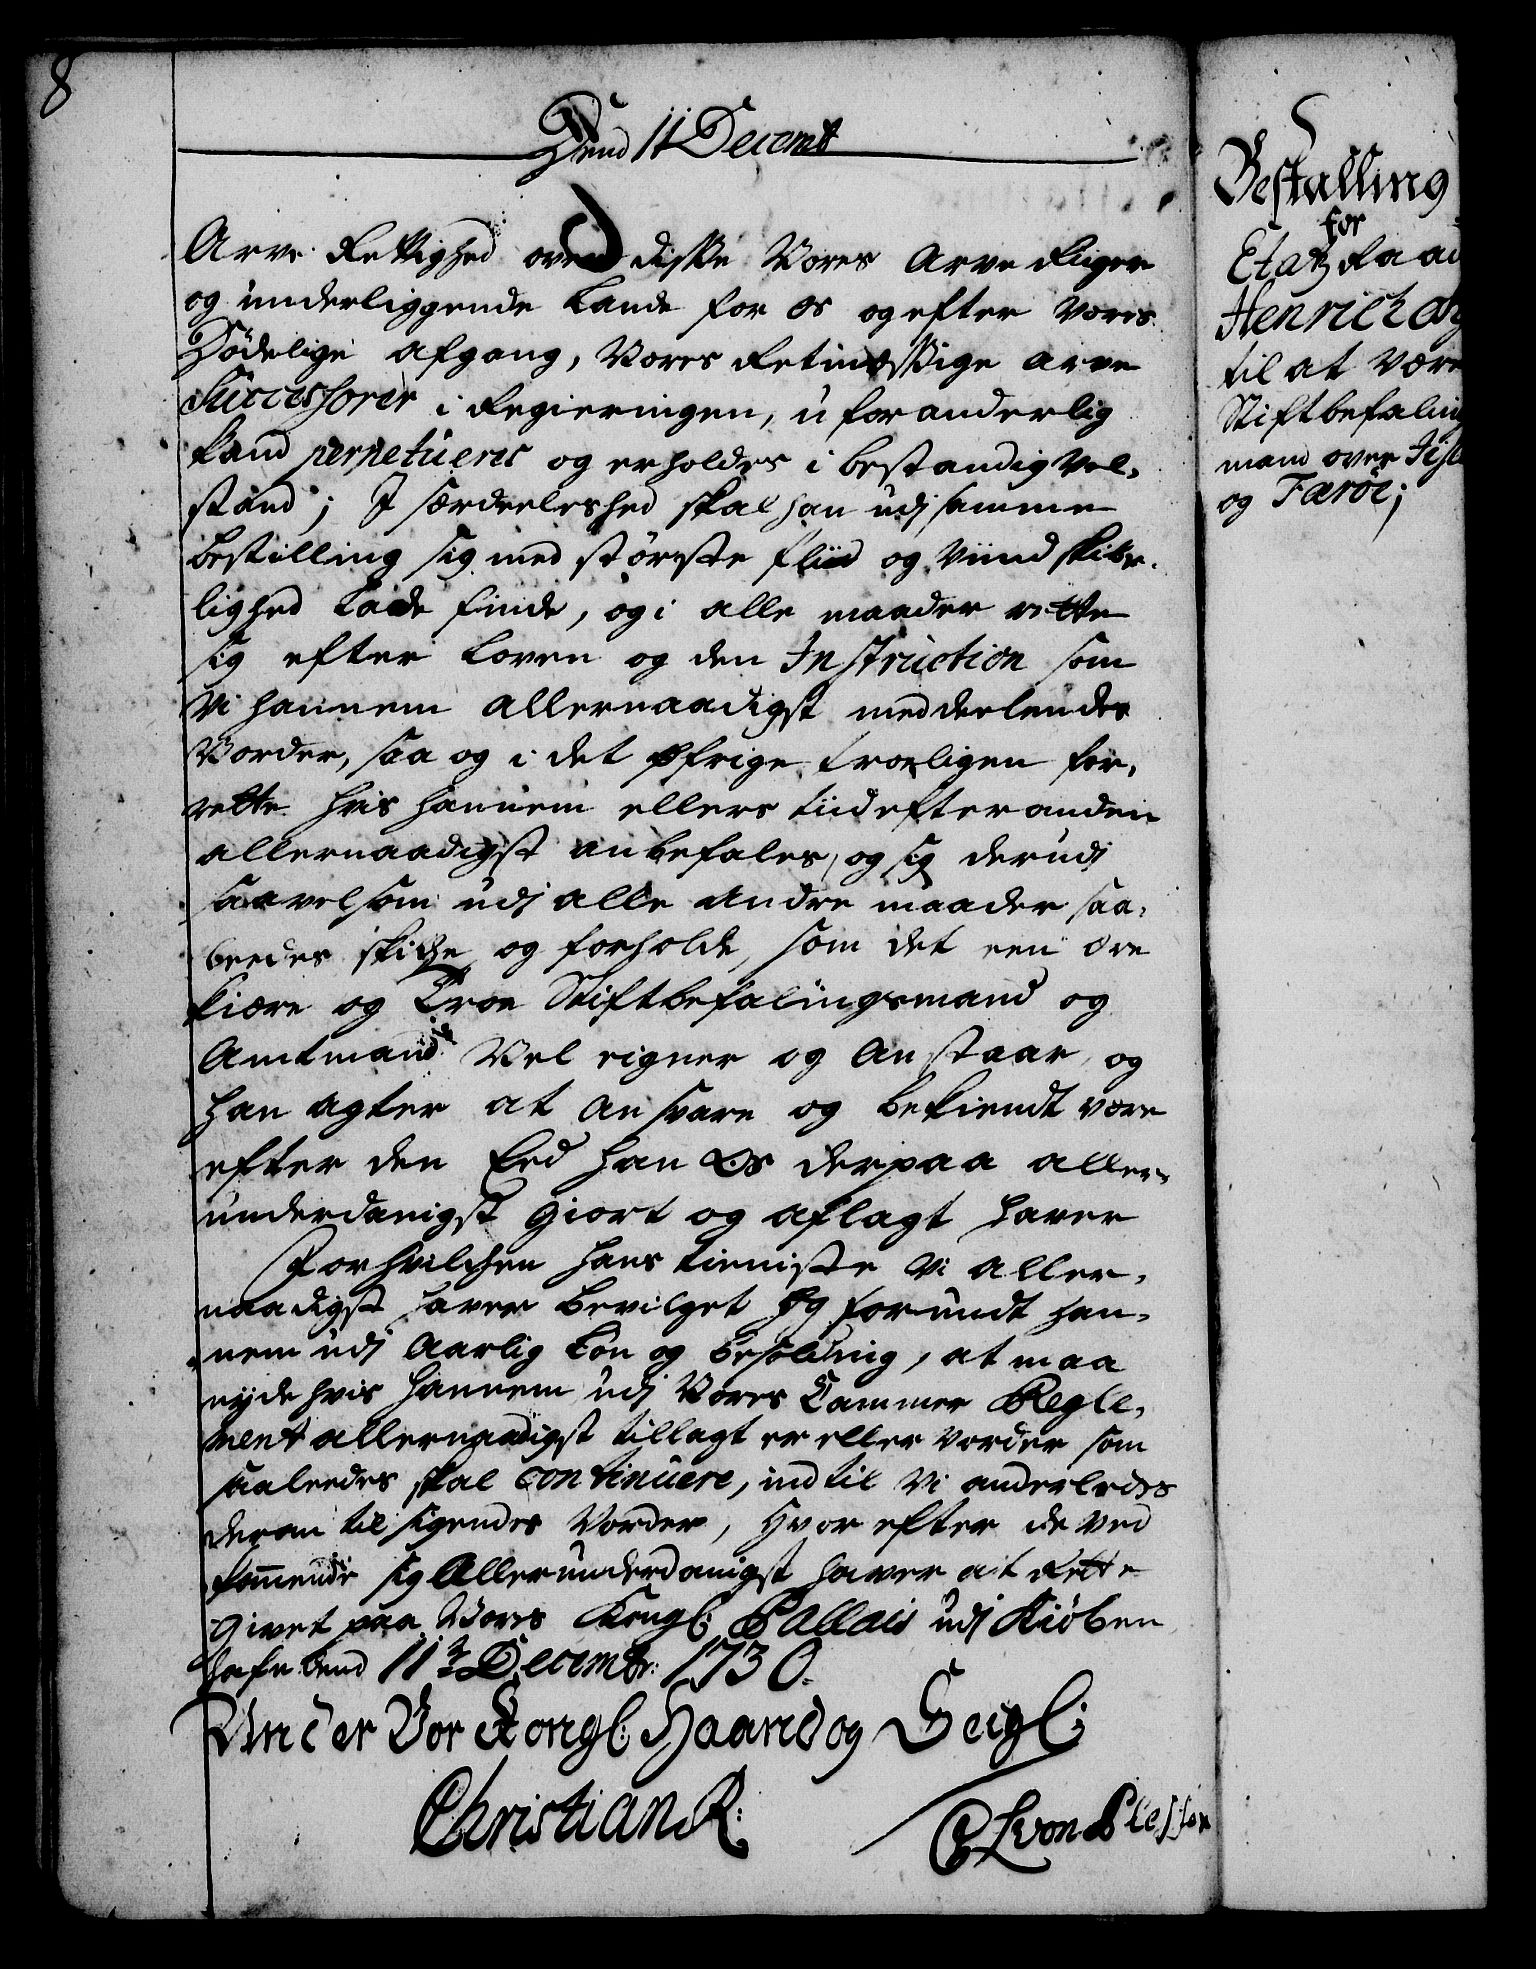 8
Dend 11 Decemb
Arve Rettighed over disse Vores Arve Riger
og underliggende Lande for os og efter Vores
Dødelige afgang, Vores Retmæssige arve
Successorer i Regieringen, uforanderlig
kand perpetueres og erholdes i bestandig Vel,
stand; I særdeeleshed skal han udj samme
bestilling sig med største fliid og Viindskibe,
lighed Lade finde, og i alle maader rette
sig efter Loven og den Instruction som
Vi hannem allernaadigst meddeelendes
Vorder, saa og i det øfrige troeligen for,
rette hvis hannem ellers tiid efter anden
allernaadigst anbefales, og sig derudj
saavelsom udj alle andre maader saa,
leedes skicke og forholde, som det een ære
kiære og Troe Stiftbefalingsmand og
Amtmand Vel eigner og Anstaar, og
han agter at ansvare og bekiendt være
efter den Eed han Os derpaa aller,
underdanigst giort og aflagt haver
For hvilcken hans tieniste Vi aller,
naadigst haver bevilget og forundt han,
nem udj Aarlig Løn og besolding, at maa
nyde hvis hannem udj Vores Cammer Regle,
ment allernaadigst tillagt er eller vorder som
saaleedes skal continuere, indtil Vi anderledes
derom tilsigendes Vorder, hvorefter de Ved
kommende sig Allerunderdanigst haver at Rette
Givet paa Vores Kongl: Pallais udj Kiøben
hafn dend 11te Decembr: 1730.
Under Vor Kongl: Haand og Seigl:
Christian R:
C L von Plessen
Bestalling
for
Etatz Raad
Henrich
til at Være
Stiftbefaling
mand over Isl
og Færöe;